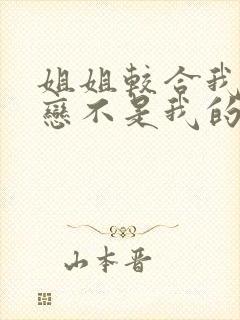 姐姐較合我
戀不是我的
山本晋